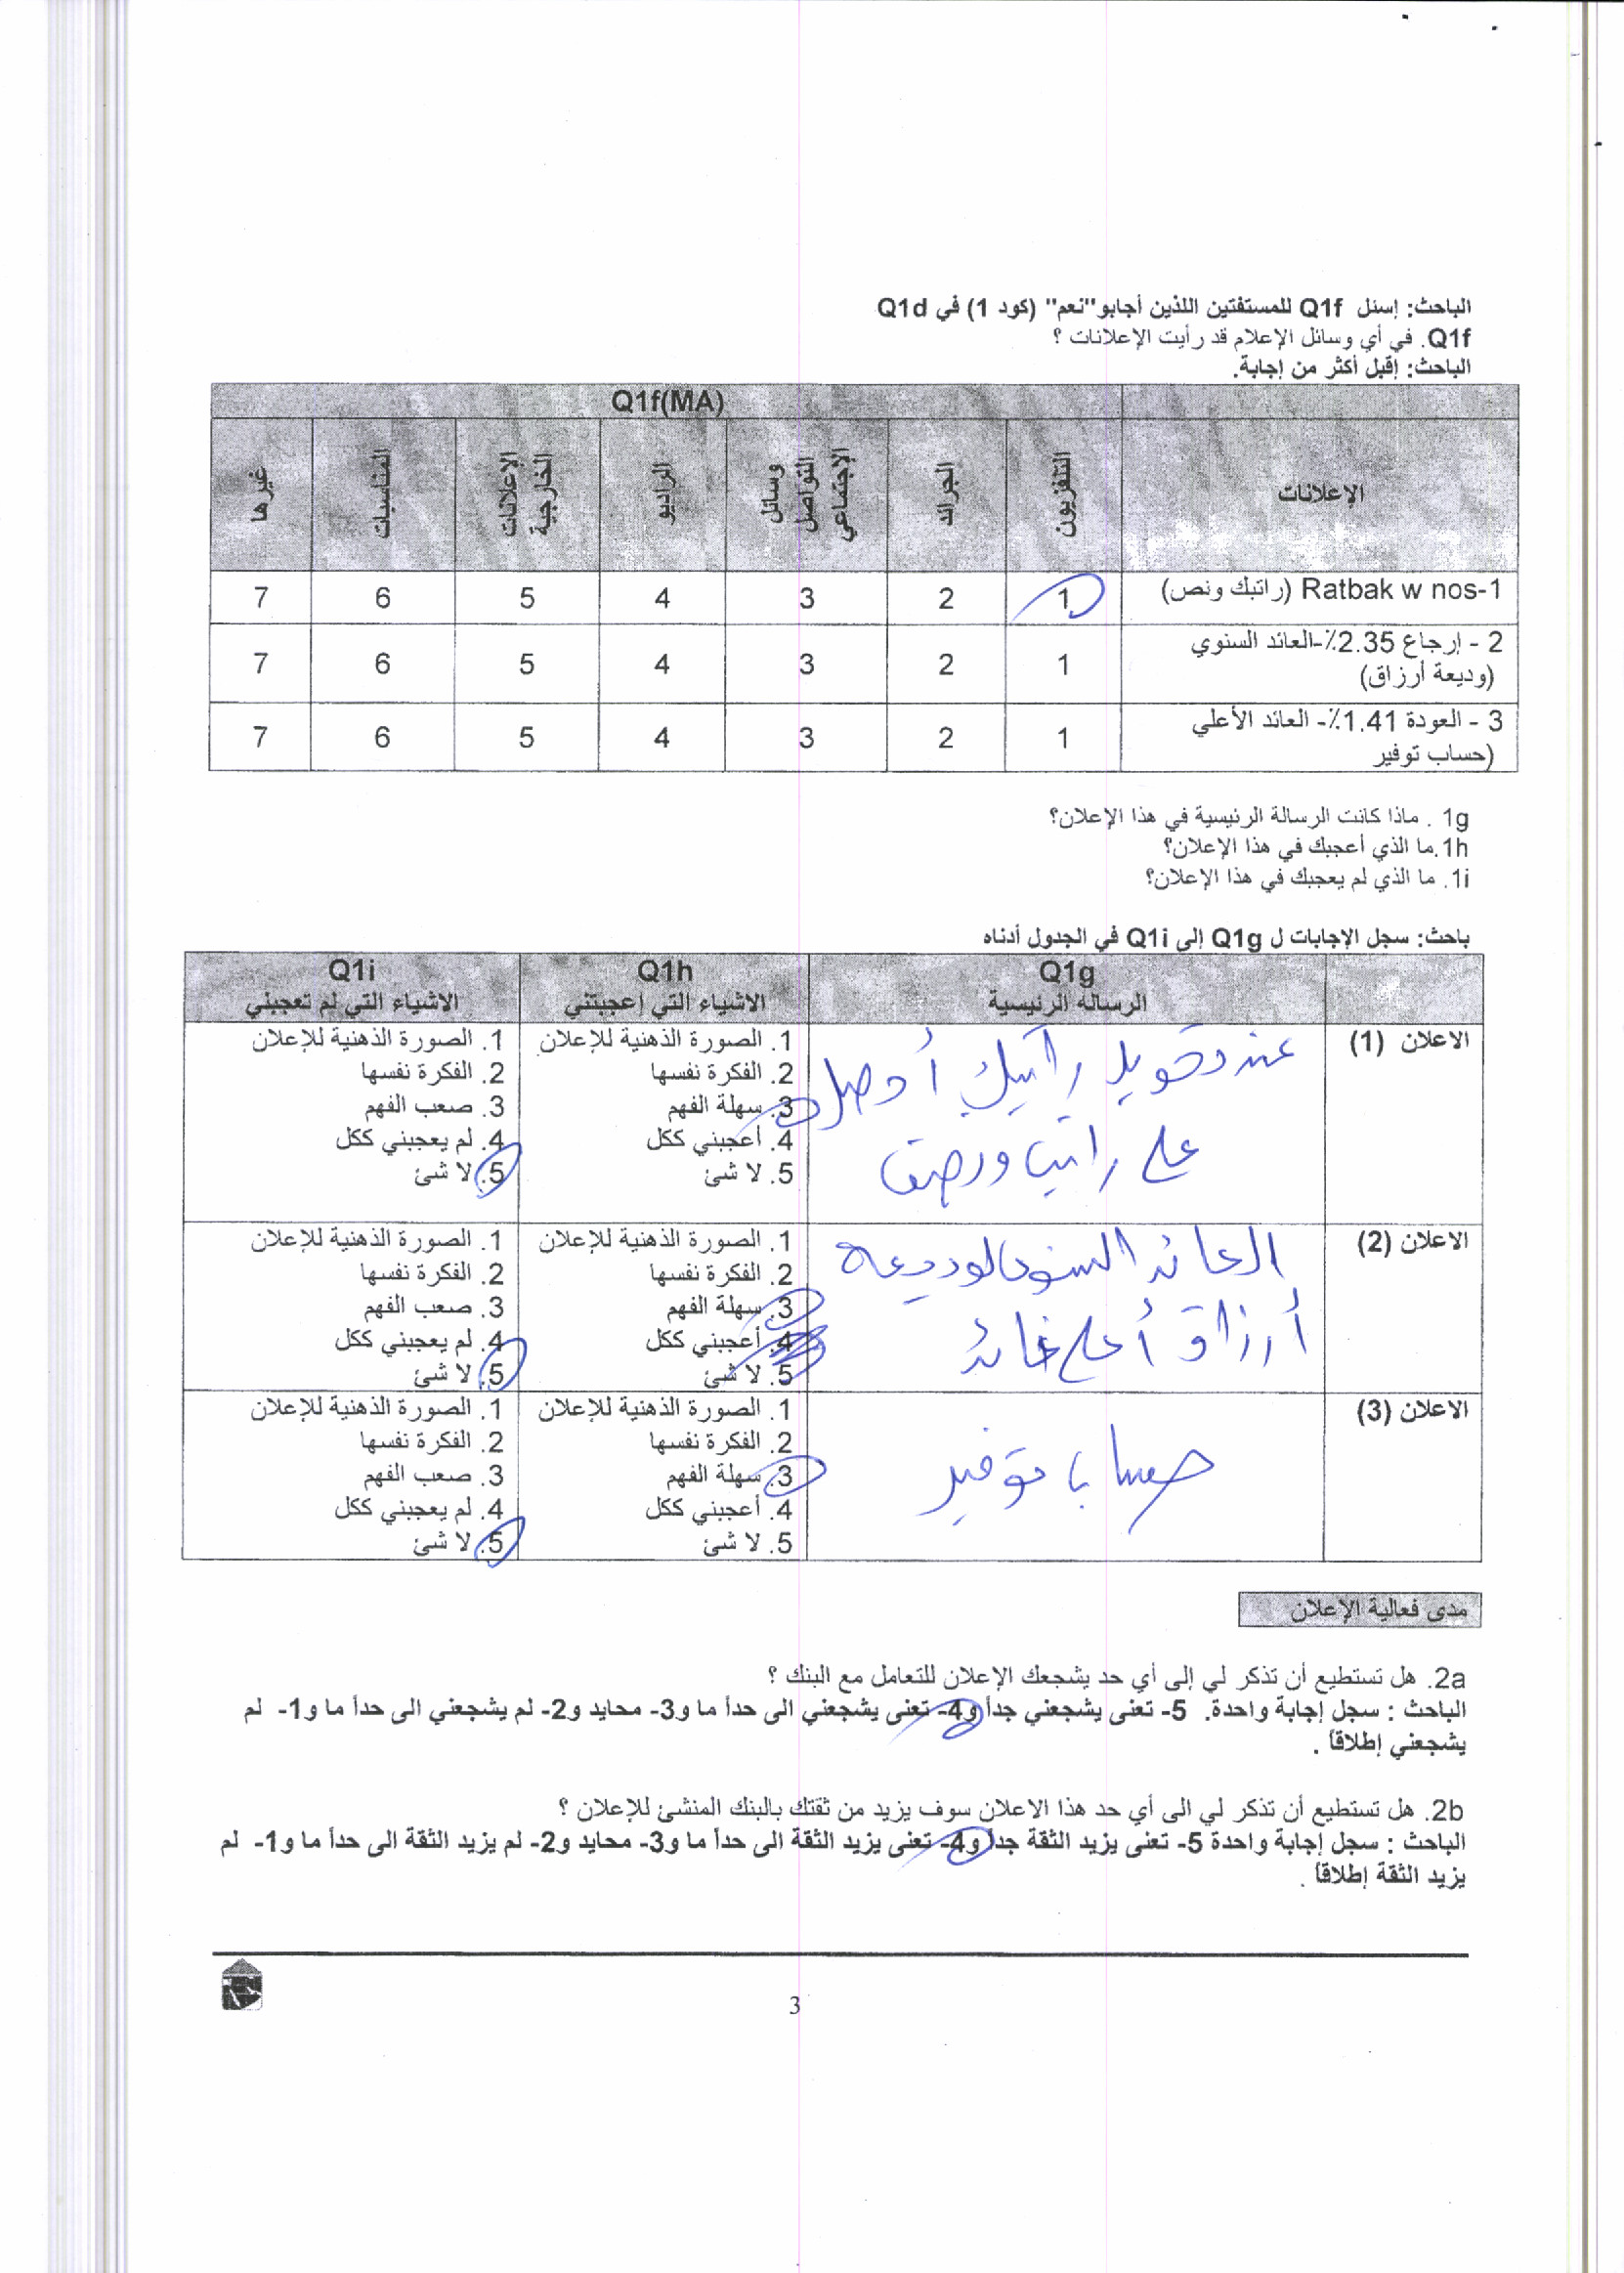 الباحث: إسئل Q1f للمستفتين اللذين أجابو"نعم" (كود 1) في Q1d
Q1f. في أي وسائل الإعلام قد رأيت الإعلانات ؟
الباحث: إقبل أكثر من إجابة.
Q1f(MA)
الإعلانات التلفزيون الجرائد وسائل التواصل الإجتماعي الراديو الإعلانات الخارجية المناسبات غيرها
Ratbak w nos-1 (راتبك ونص) 1 2 3 4 5 6 7
2 - إرجاع 2.35٪-العائد السنوي (وديعة أرزاق) 1 2 3 4 5 6 7
3 - العودة 1.41٪- العائد الأعلي (حساب توفير 1 2 3 4 5 6 7
1g . ماذا كانت الرسالة الرئيسية في هذا الإعلان؟
1h.ما الذي أعجبك في هذا الإعلان؟
1i. ما الذي لم يعجبك في هذا الإعلان؟
باحث: سجل الإجابات ل Q1g إلى Q1i في الجدول أدناه
Q1g Q1h Q1i
الرساله الرئيسية الاشياء التي إعجبتني الاشياء التي لم تعجبني
الاعلان (1)
عند تحويل راتبك أحصل
على راتب ونصف
1. الصورة الذهنية للإعلان
2. الفكرة نفسها
3. سهلة الفهم
4. أعجبني ككل
5. لا شئ
1. الصورة الذهنية للإعلان
2. الفكرة نفسها
3. صعب الفهم
4. لم يعجبني ككل
5. لا شئ
الاعلان (2)
العائد السنوي لوديعة
أرزاق أعلى عائد
1. الصورة الذهنية للإعلان
2. الفكرة نفسها
3. سهلة الفهم
4. أعجبني ككل
5. لا شئ
1. الصورة الذهنية للإعلان
2. الفكرة نفسها
3. صعب الفهم
4. لم يعجبني ككل
5. لا شئ
الاعلان (3)
حساب توفير
1. الصورة الذهنية للإعلان
2. الفكرة نفسها
3. سهلة الفهم
4. أعجبني ككل
5. لا شئ
1. الصورة الذهنية للإعلان
2. الفكرة نفسها
3. صعب الفهم
4. لم يعجبني ككل
5. لا شئ
مدى فعالية الإعلان
2a. هل تستطيع أن تذكر لي إلى أي حد يشجعك الإعلان للتعامل مع البنك ؟
الباحث : سجل إجابة واحدة. 5- تعنى يشجعني جداً و4- تعنى يشجعني الى حداً ما و3- محايد و2- لم يشجعني الى حداً ما و1- لم
يشجعني إطلاقاً .
2b. هل تستطيع أن تذكر لي الى أي حد هذا الاعلان سوف يزيد من ثقتك بالبنك المنشئ للإعلان ؟
الباحث : سجل إجابة واحدة 5- تعنى يزيد الثقة جداً و4- تعنى يزيد الثقة الى حداً ما و3- محايد و2- لم يزيد الثقة الى حداً ما و1- لم
يزيد الثقة إطلاقاً .
3